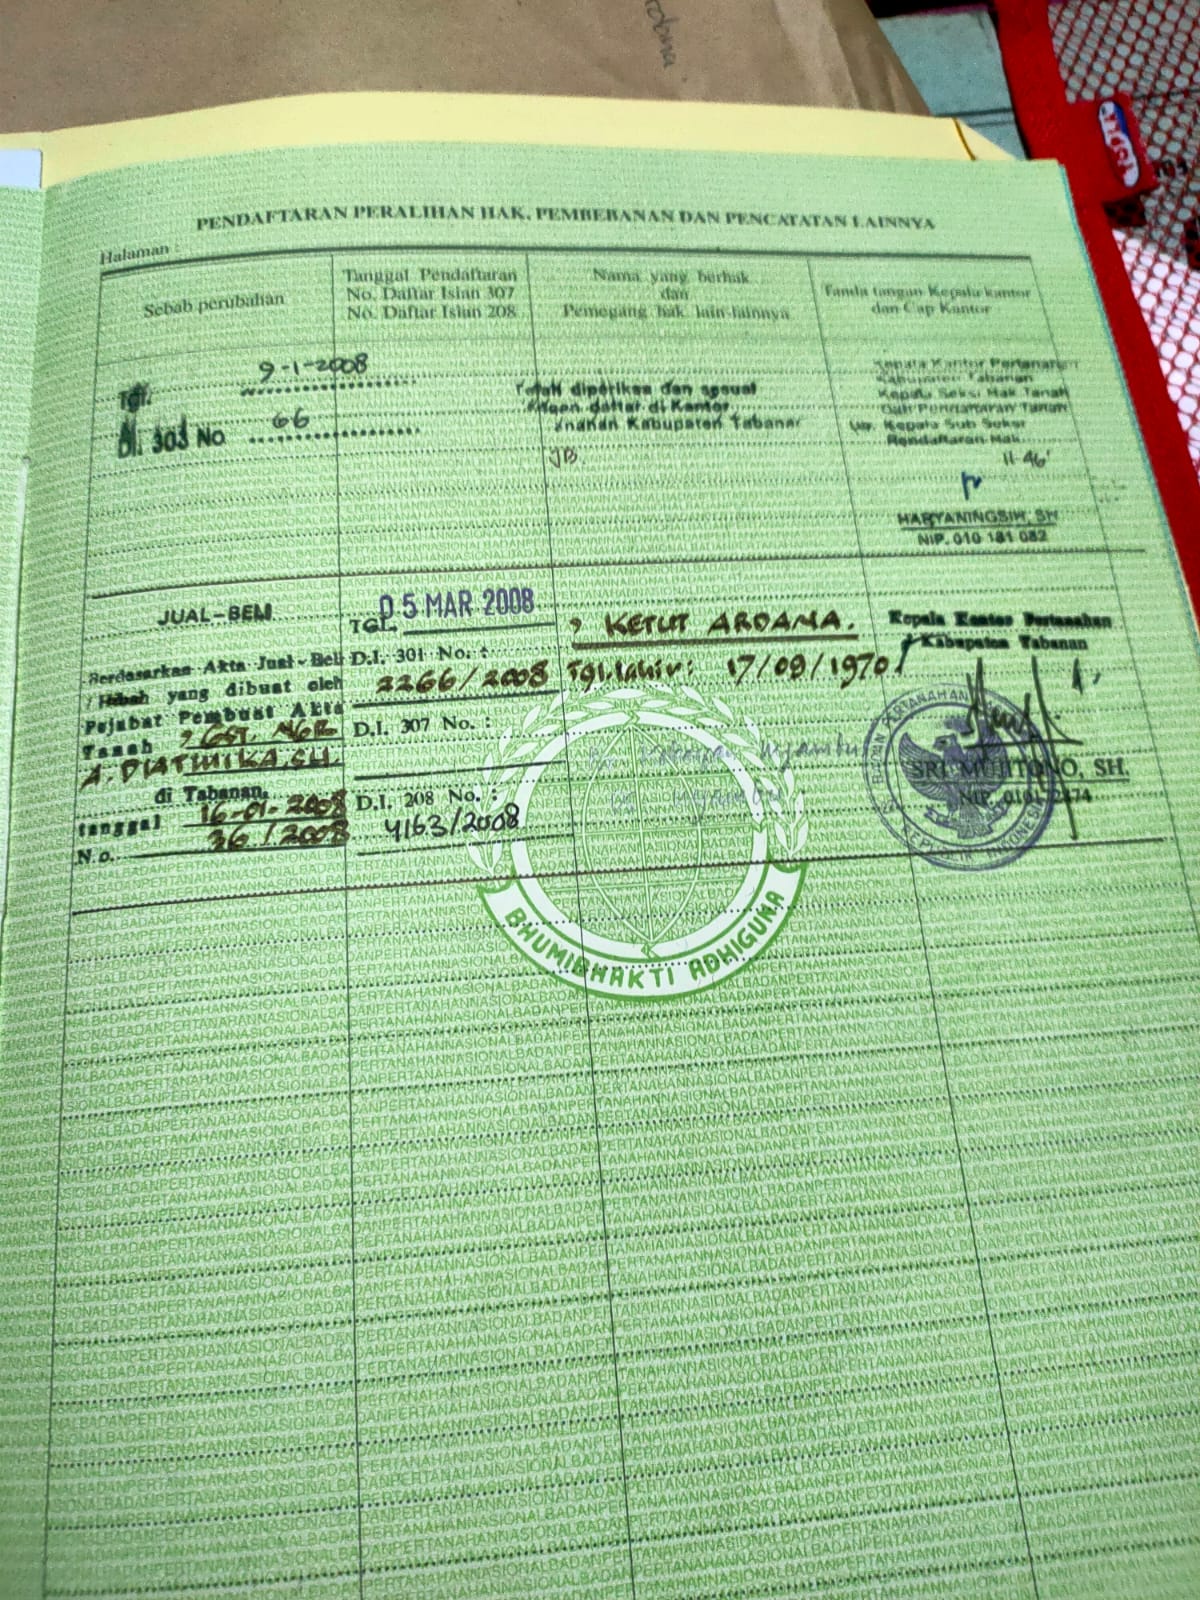 PENDAFTARAN PERALIHAN HAK, PEMBEBANAN DAN PENCATATAN LAINNYA
Halaman :
Sebab perubahan
Tanggal Pendaftaran
No. Daftar Isian 307
No. Daftar Isian 208
Nama yang berhak
dan
Pemegang hak lain-lainnya
Tanda tangan Kepala kantor
dan Cap Kantor
Tgl. 9-1-2008
DI. 303 No 66
Telah diperiksa dan sesuai
dengan daftar di Kantor
Kabupaten Tabanan
JB.
Kepala Kantor Pertanahan
Kabupaten Tabanan
Kepala Seksi Hak Tanah
Dan Pendaftaran Tanah
Kepala Sub Seksi
Pendaftaran Hak
11-46'
HARYANINGSIH, SH
NIP. 010 181 082
JUAL-BELI
Berdasarkan Akta Jual-Beli
/ Hibah yang dibuat oleh
Pejabat Pembuat Akta
Tanah , GST. NGR
A. DIATMIKA, SH.
di Tabanan,
tanggal 16-01-2008
No. 36/2008
TGL. 05 MAR 2008
D.I. 301 No. :
2266/2008
D.I. 307 No. :
D.I. 208 No. :
4163/2008
, KETUT ARDANA.
Tgl.lahir: 17/09/1970
Kepala Kantor Pertanahan
Kabupaten Tabanan
BADAN PERTANAHAN
REPUBLIK INDONESIA
SRI MUJITONO, SH.
BHUMIBHAKTI ADHIGUNA